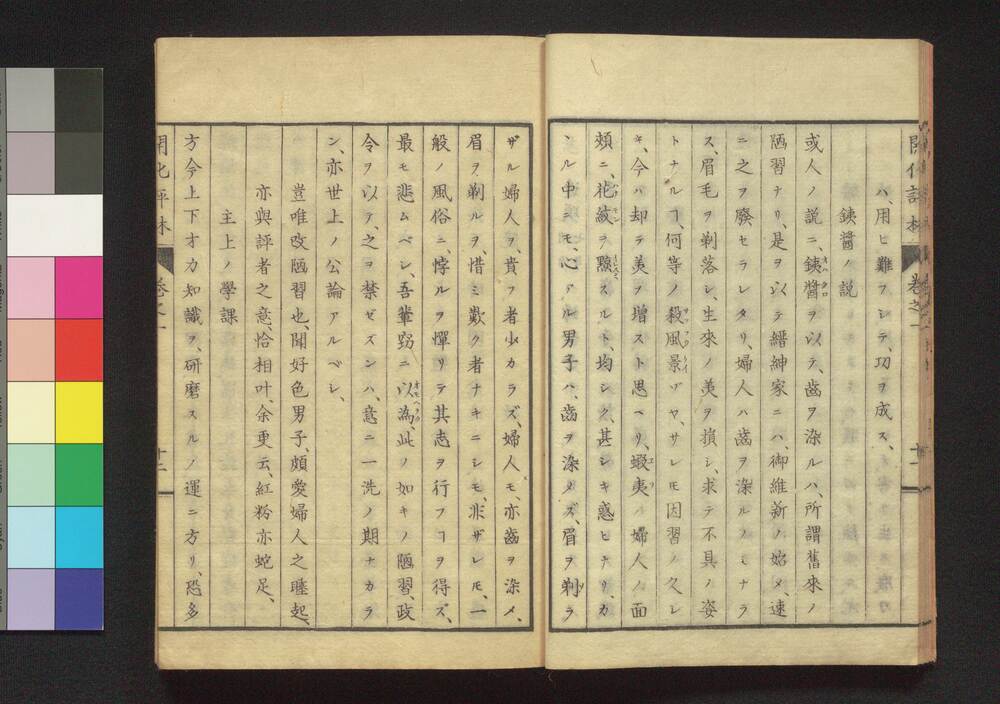 開化評林
卷之一
十一
ハ、用ヒ難フシテ、功ヲ成ス、
鉄醬ノ説
或人ノ説ニ、鉄醬ヲ以テ、齒ヲ染ルハ、所謂舊來ノ
陋習ナリ、是ヲ以テ縉紳家ニハ、御維新ノ始メ、速
ニ之ヲ廢セラレタリ、婦人ハ齒ヲ染ルノミナラ
ス、眉毛ヲ剃落シ、生來ノ美ヲ損シ、求テ不具ノ姿
トナルヿ、何等ノ殺風景ゾヤ、サレモ因習ノ久レ
キ、今ハ却テ美ヲ増スト思ヘリ、蝦夷ハ婦人ノ面
頬ニ、花紋ヲ黥スルト、均シク、甚シキ惑ヒナリ、カ
ンル中ニモ、心アル男子ハ、齒ヲ染メズ、眉ヲ剃ラ
ザル婦人ヲ、貴フ者少カラズ、婦人モ、亦齒ヲ染メ、
眉ヲ剃ルヲ、惜ミ歎ク者ナキニシモ、非ザレモ、一
般ノ風俗ニ、悖ルヲ憚リテ其志ヲ行フヿヲ得ズ、
最モ悲ムベシ、吾輩窃ニ以為、此ノ如キノ陋習、政
令ヲ以テ、之ヲ禁ゼズンハ、意ニ一洗ノ期ナカラ
ン、亦世上ノ公論アルベシ、
豈唯改陋習也、聞好色男子、頗愛婦人之睡起、
亦與評者之意、恰相叶、余更云、紅粉亦蛇足、
主上ノ學課
方今上下オカ知識ヲ、研磨スルノ運ニ方リ、恐多
開化評林
卷之一
十二